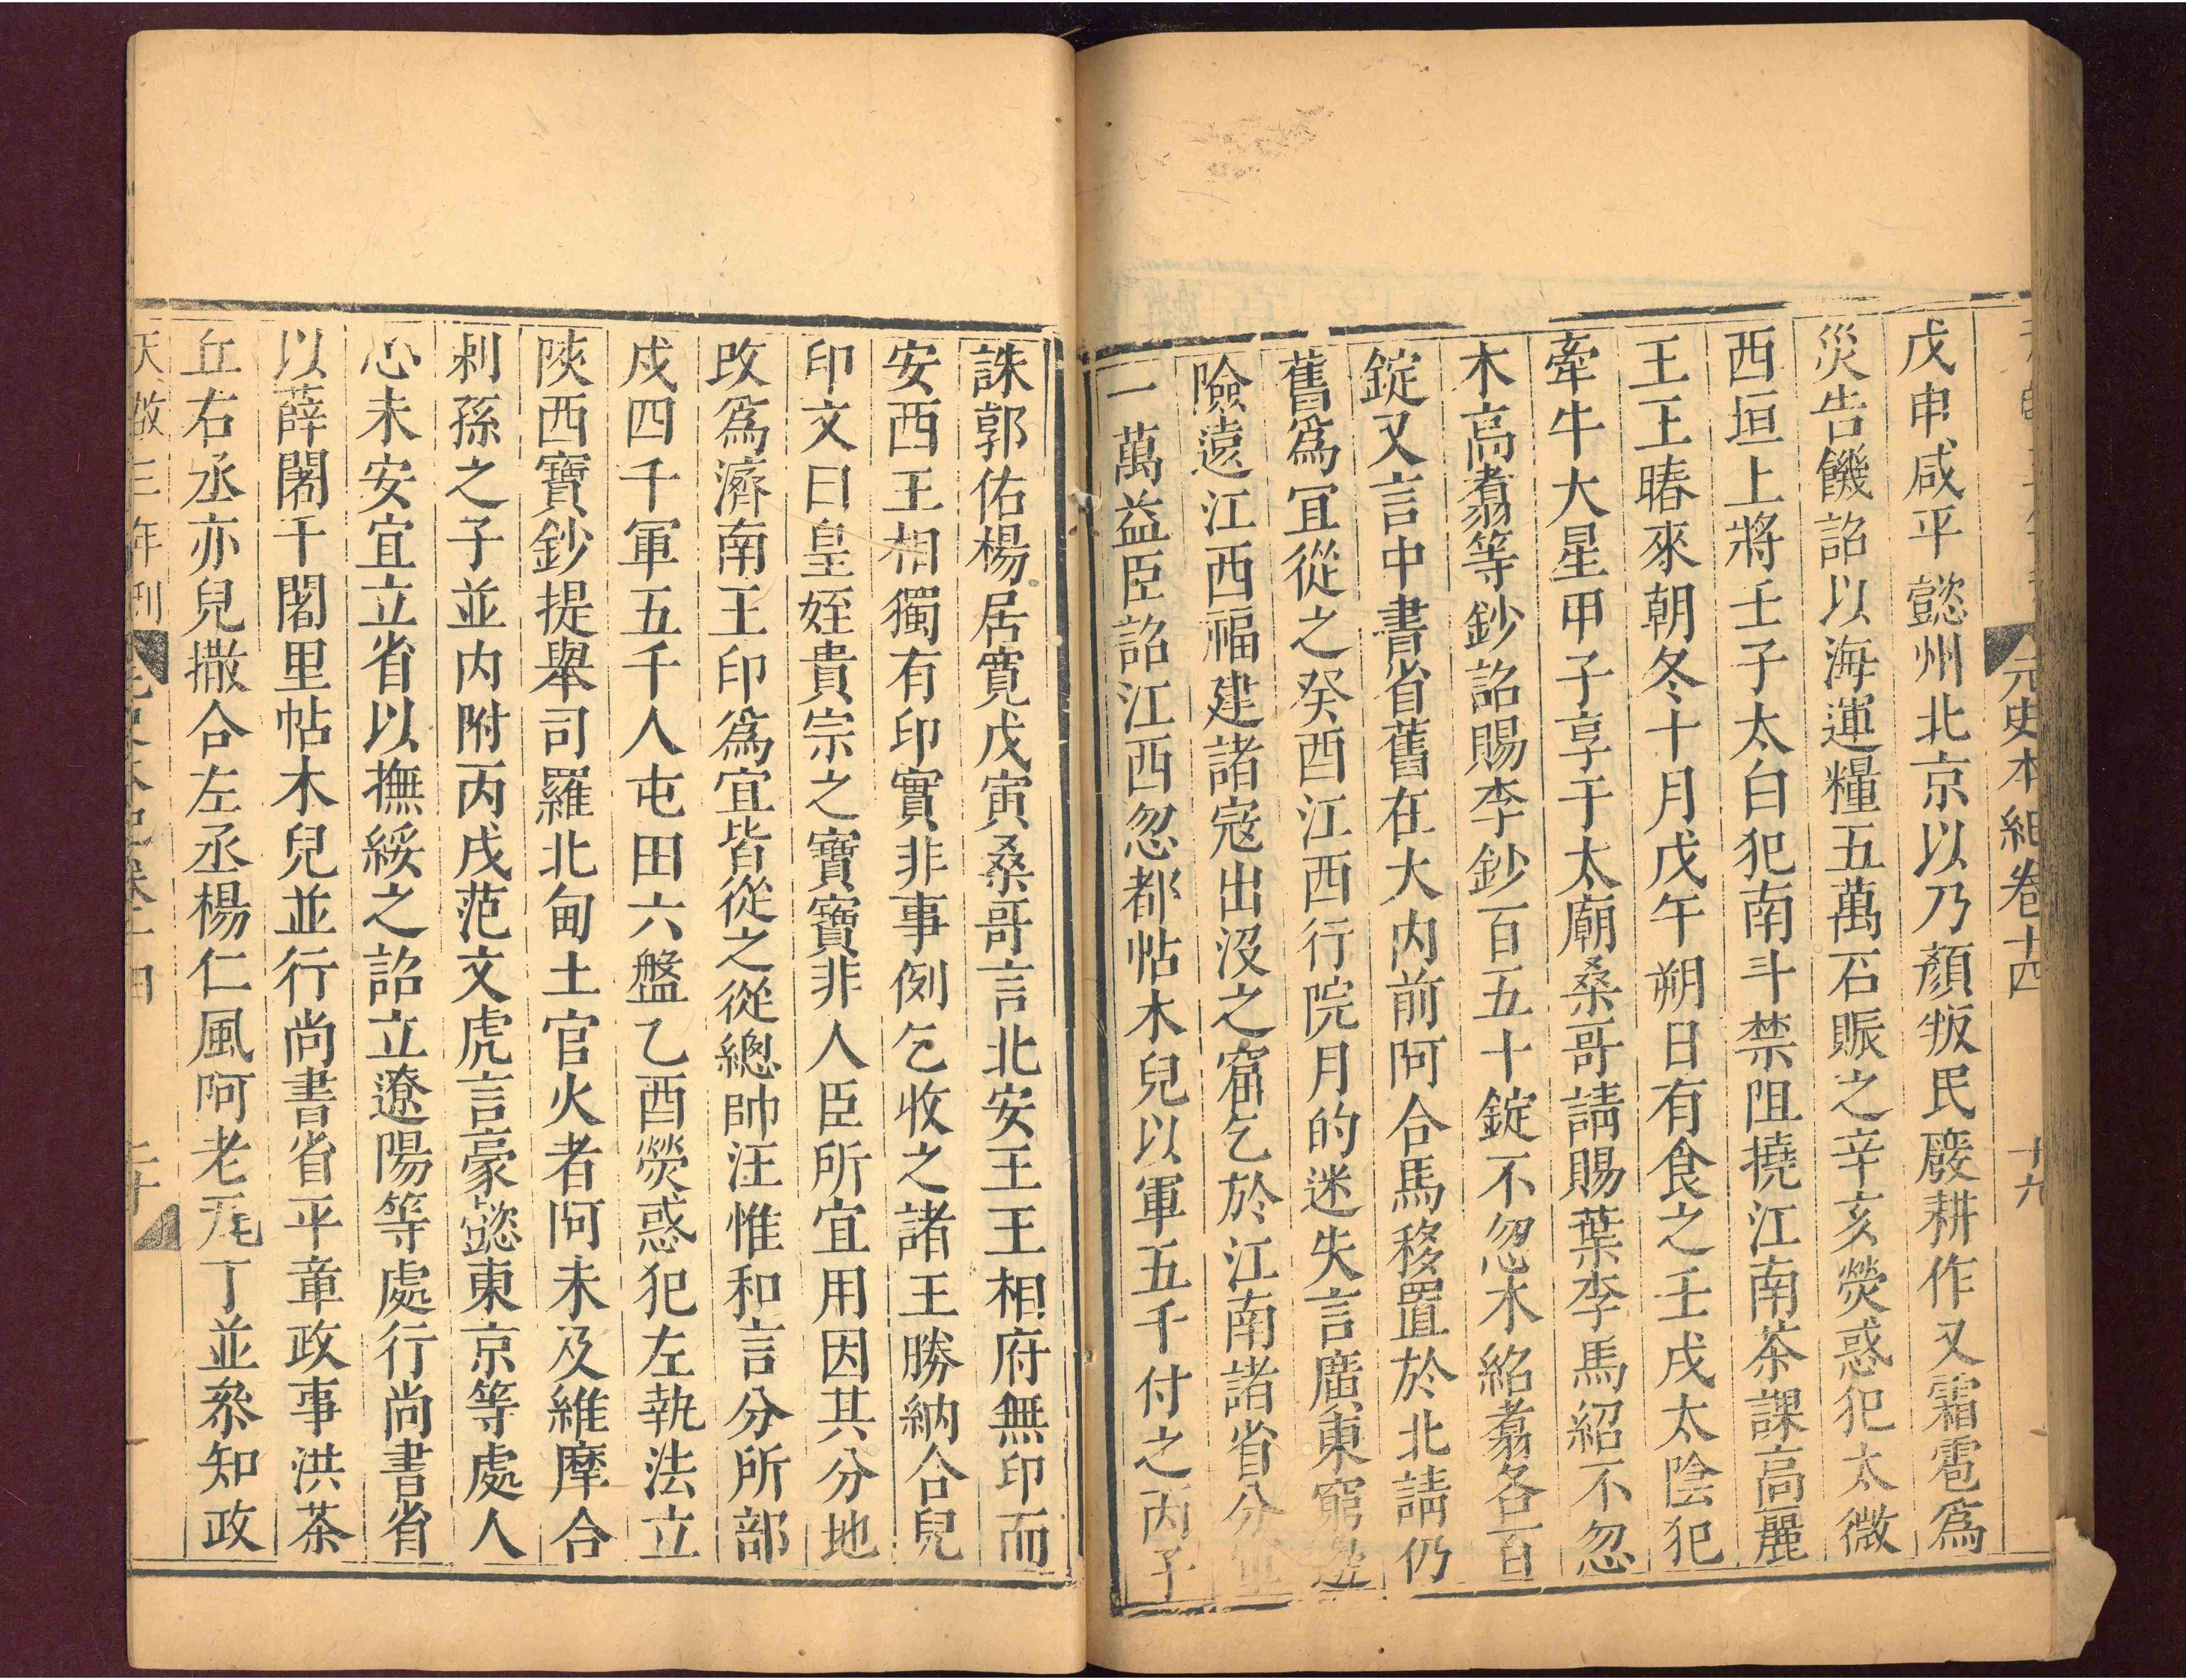 元史本紀卷十四 十九
戊申咸平懿州北京以乃顏叛民廢耕作又霜雹為
災告饑詔以海運糧五萬石賑之辛亥熒惑犯太微
西垣上將壬子太白犯南斗禁阻撓江南茶課高麗
王王賰來朝冬十月戊午朔日有食之壬戌太陰犯
牽牛大星甲子享于太廟桑哥請賜葉李馬紹不忽
木高翥等鈔詔賜李鈔百五十錠不忽木紹翥各百
錠又言中書省舊在大內前阿合馬移置於北請仍
舊爲宜從之癸酉江西行院月的迷失言廣東窮邊
險遠江西福建諸寇出沒之窟乞於江南諸省分
一萬益臣詔江西忽都帖木兒以軍五千付之丙子
誅郭佑楊居寬戊寅桑哥言北安王王相府無印而
安西王相獨有印實非事例乞收之諸王勝納合兒
印文曰皇姪貴宗之寶寶非人臣所宜用因其分地
改爲濟南王印爲宜皆從之從總帥汪惟和言分所部
戍四千軍五千人屯田六盤乙酉熒惑犯左執法立
陝西寶鈔提舉司羅北甸土官火者阿未及維摩合
剌孫之子並內附丙戌范文虎言豪懿東京等處人
心未安宜立省以撫綏之詔立遼陽等處行尚書省
以薛闍干闍里帖木兒並行尚書省平章政事洪茶
丘右丞亦兒撒合左丞楊仁風阿老尾丁並參知政
三年刊